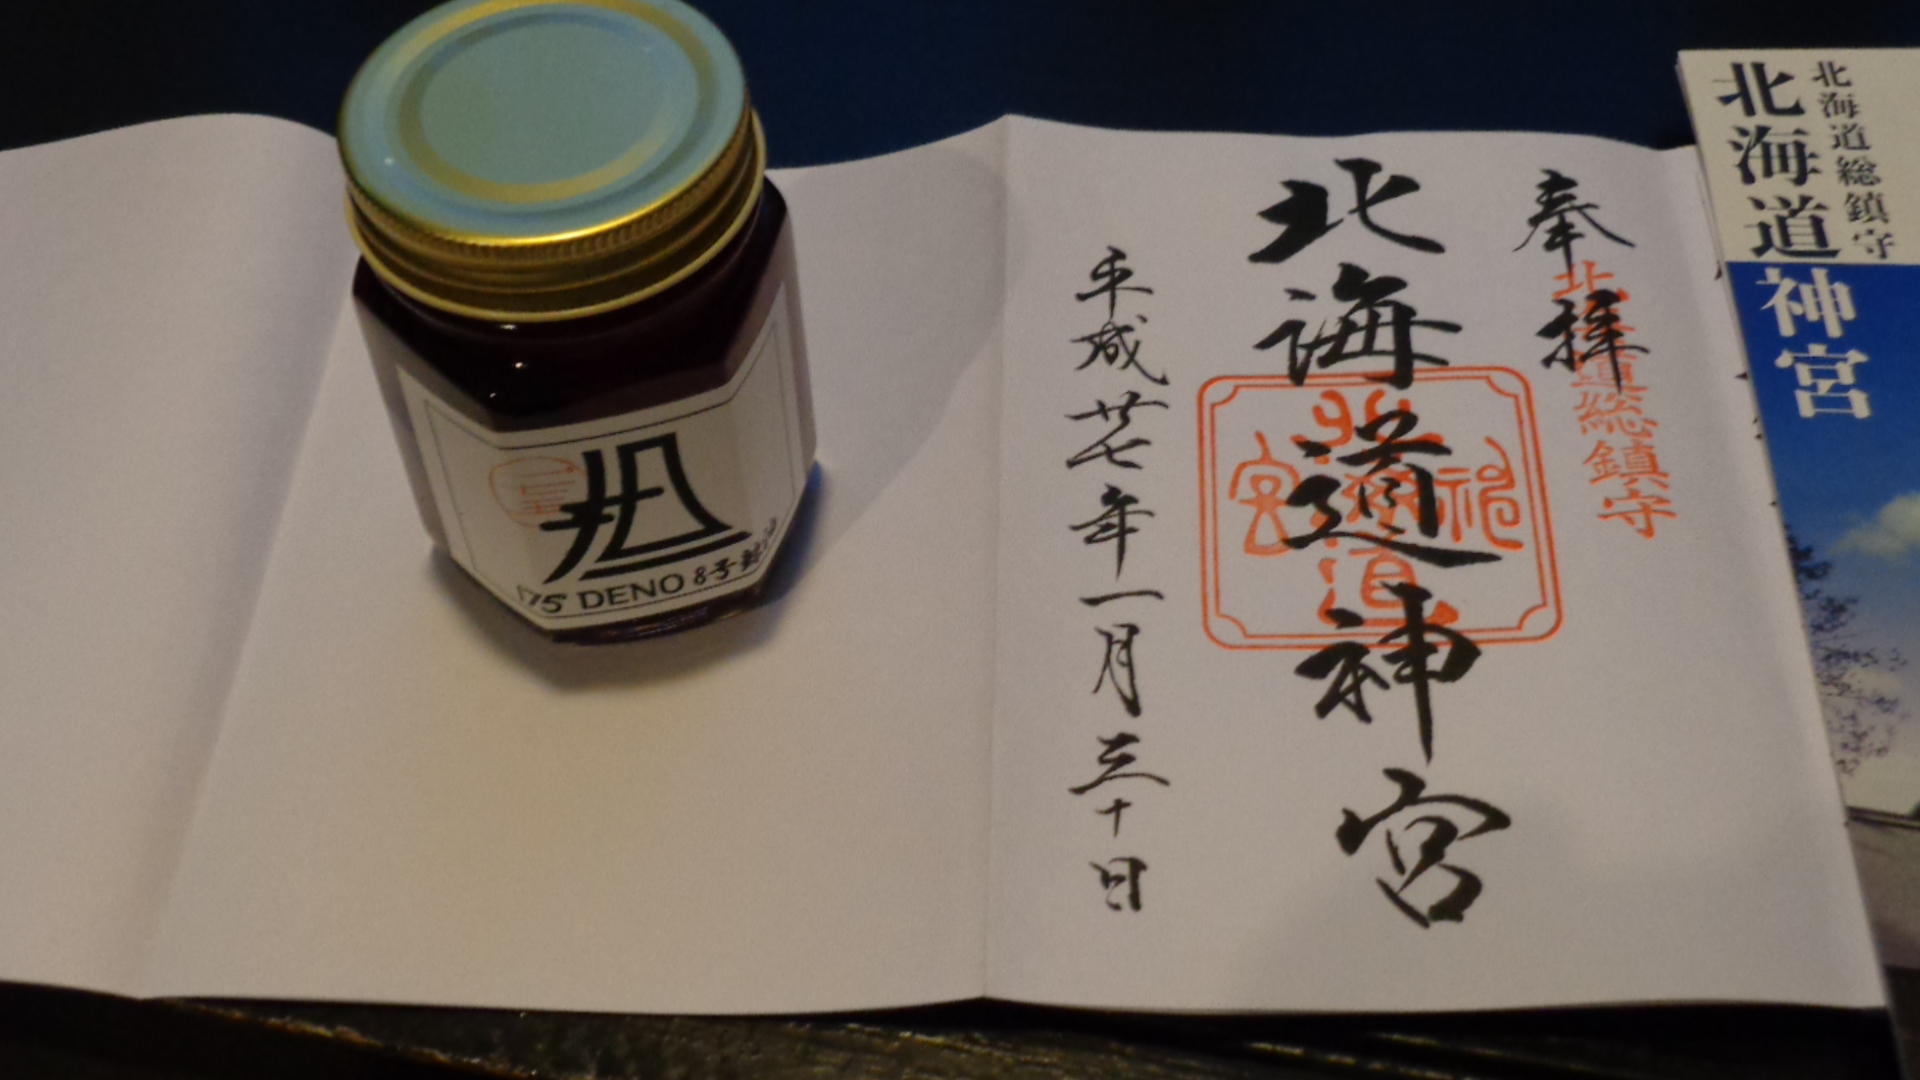 北海道総鎮守
北海道神宮
奉拝
北海道総鎮守
北海道神宮
北海道神宮
平成廿七年一月三十日
'75 DENO 8子